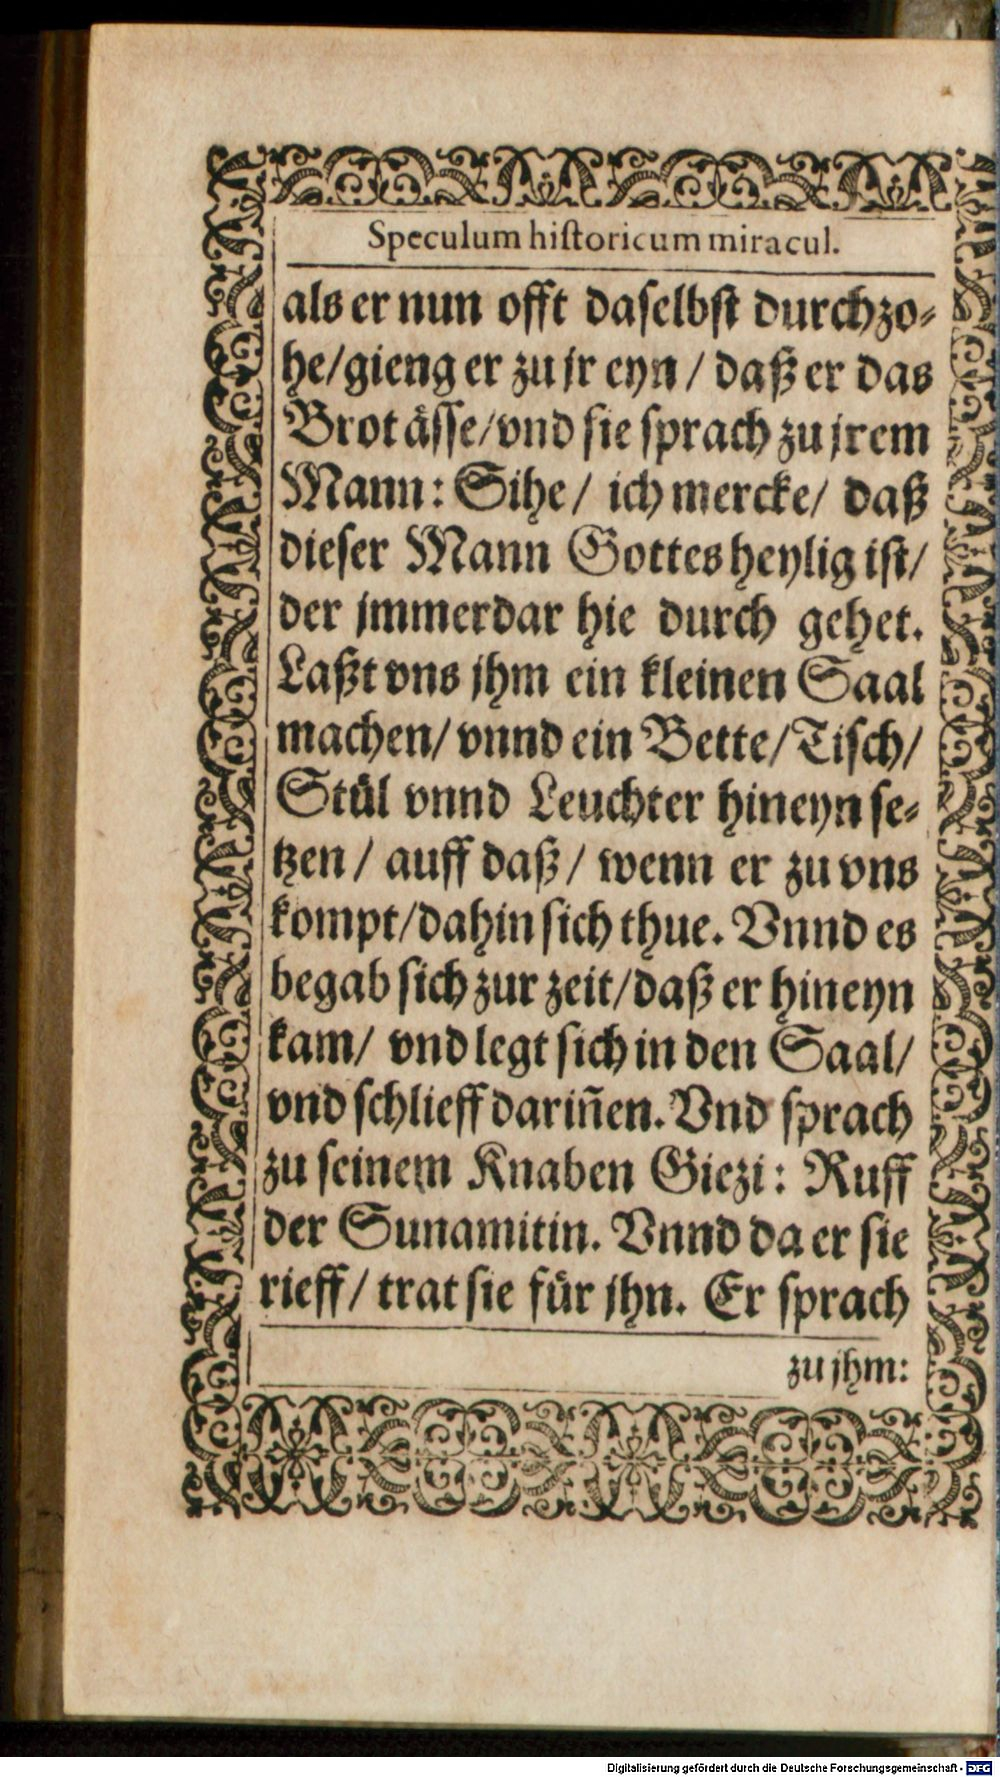 Speculum historicum miracul.
als er nun offt daselbst durchzo-
he/gieng er zu jr eyn / daß er das
Brot ässe/vnd sie sprach zu jrem
Mann: Sihe/ ich mercke/ daß
dieser Mann Gottes heylig ist/
der jmmerdar hie durch gehet.
Laßt vns jhm ein kleinen Saal
machen/ vnnd ein Bette/Tisch/
Stül vnnd Leuchter hineyn se-
tzen / auff daß / wenn er zu vns
kompt/dahin sich thue. Vnnd es
begab sich zur zeit/daß er hineyn
kam/ vnd legt sich in den Saal/
vnd schlieff dariñen. Vnd sprach
zu seinem Knaben Giezi: Ruff
der Sunamitin. Vnnd da er sie
rieff/ trat sie für jhn. Er sprach
zu jhm:
Digitalisierung gefördert durch die Deutsche Forschungsgemeinschaft - DFG